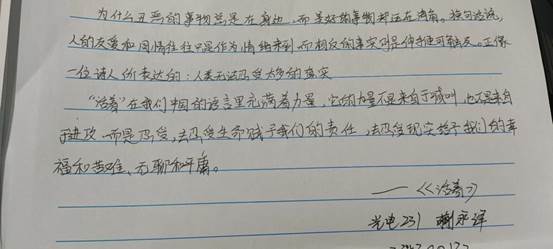 为什么丑恶的事物总是在身边，而美好的事物却远在海角。换句话说，
人的友爱和同情往往只是作为情绪来到而相反的事实则是伸手便可触及。正像
一位诗人所表达的：人类无法忍受太多的真实
“活着”在我们中国的语言里充满着力量，它的力量不是来自于喊叫，也不是来自
于进攻，而是忍受，去忍受生命赋予我们的责任，去忍受现实给予我们的幸
福和苦难、无聊和平庸。
——《活着》
光电231